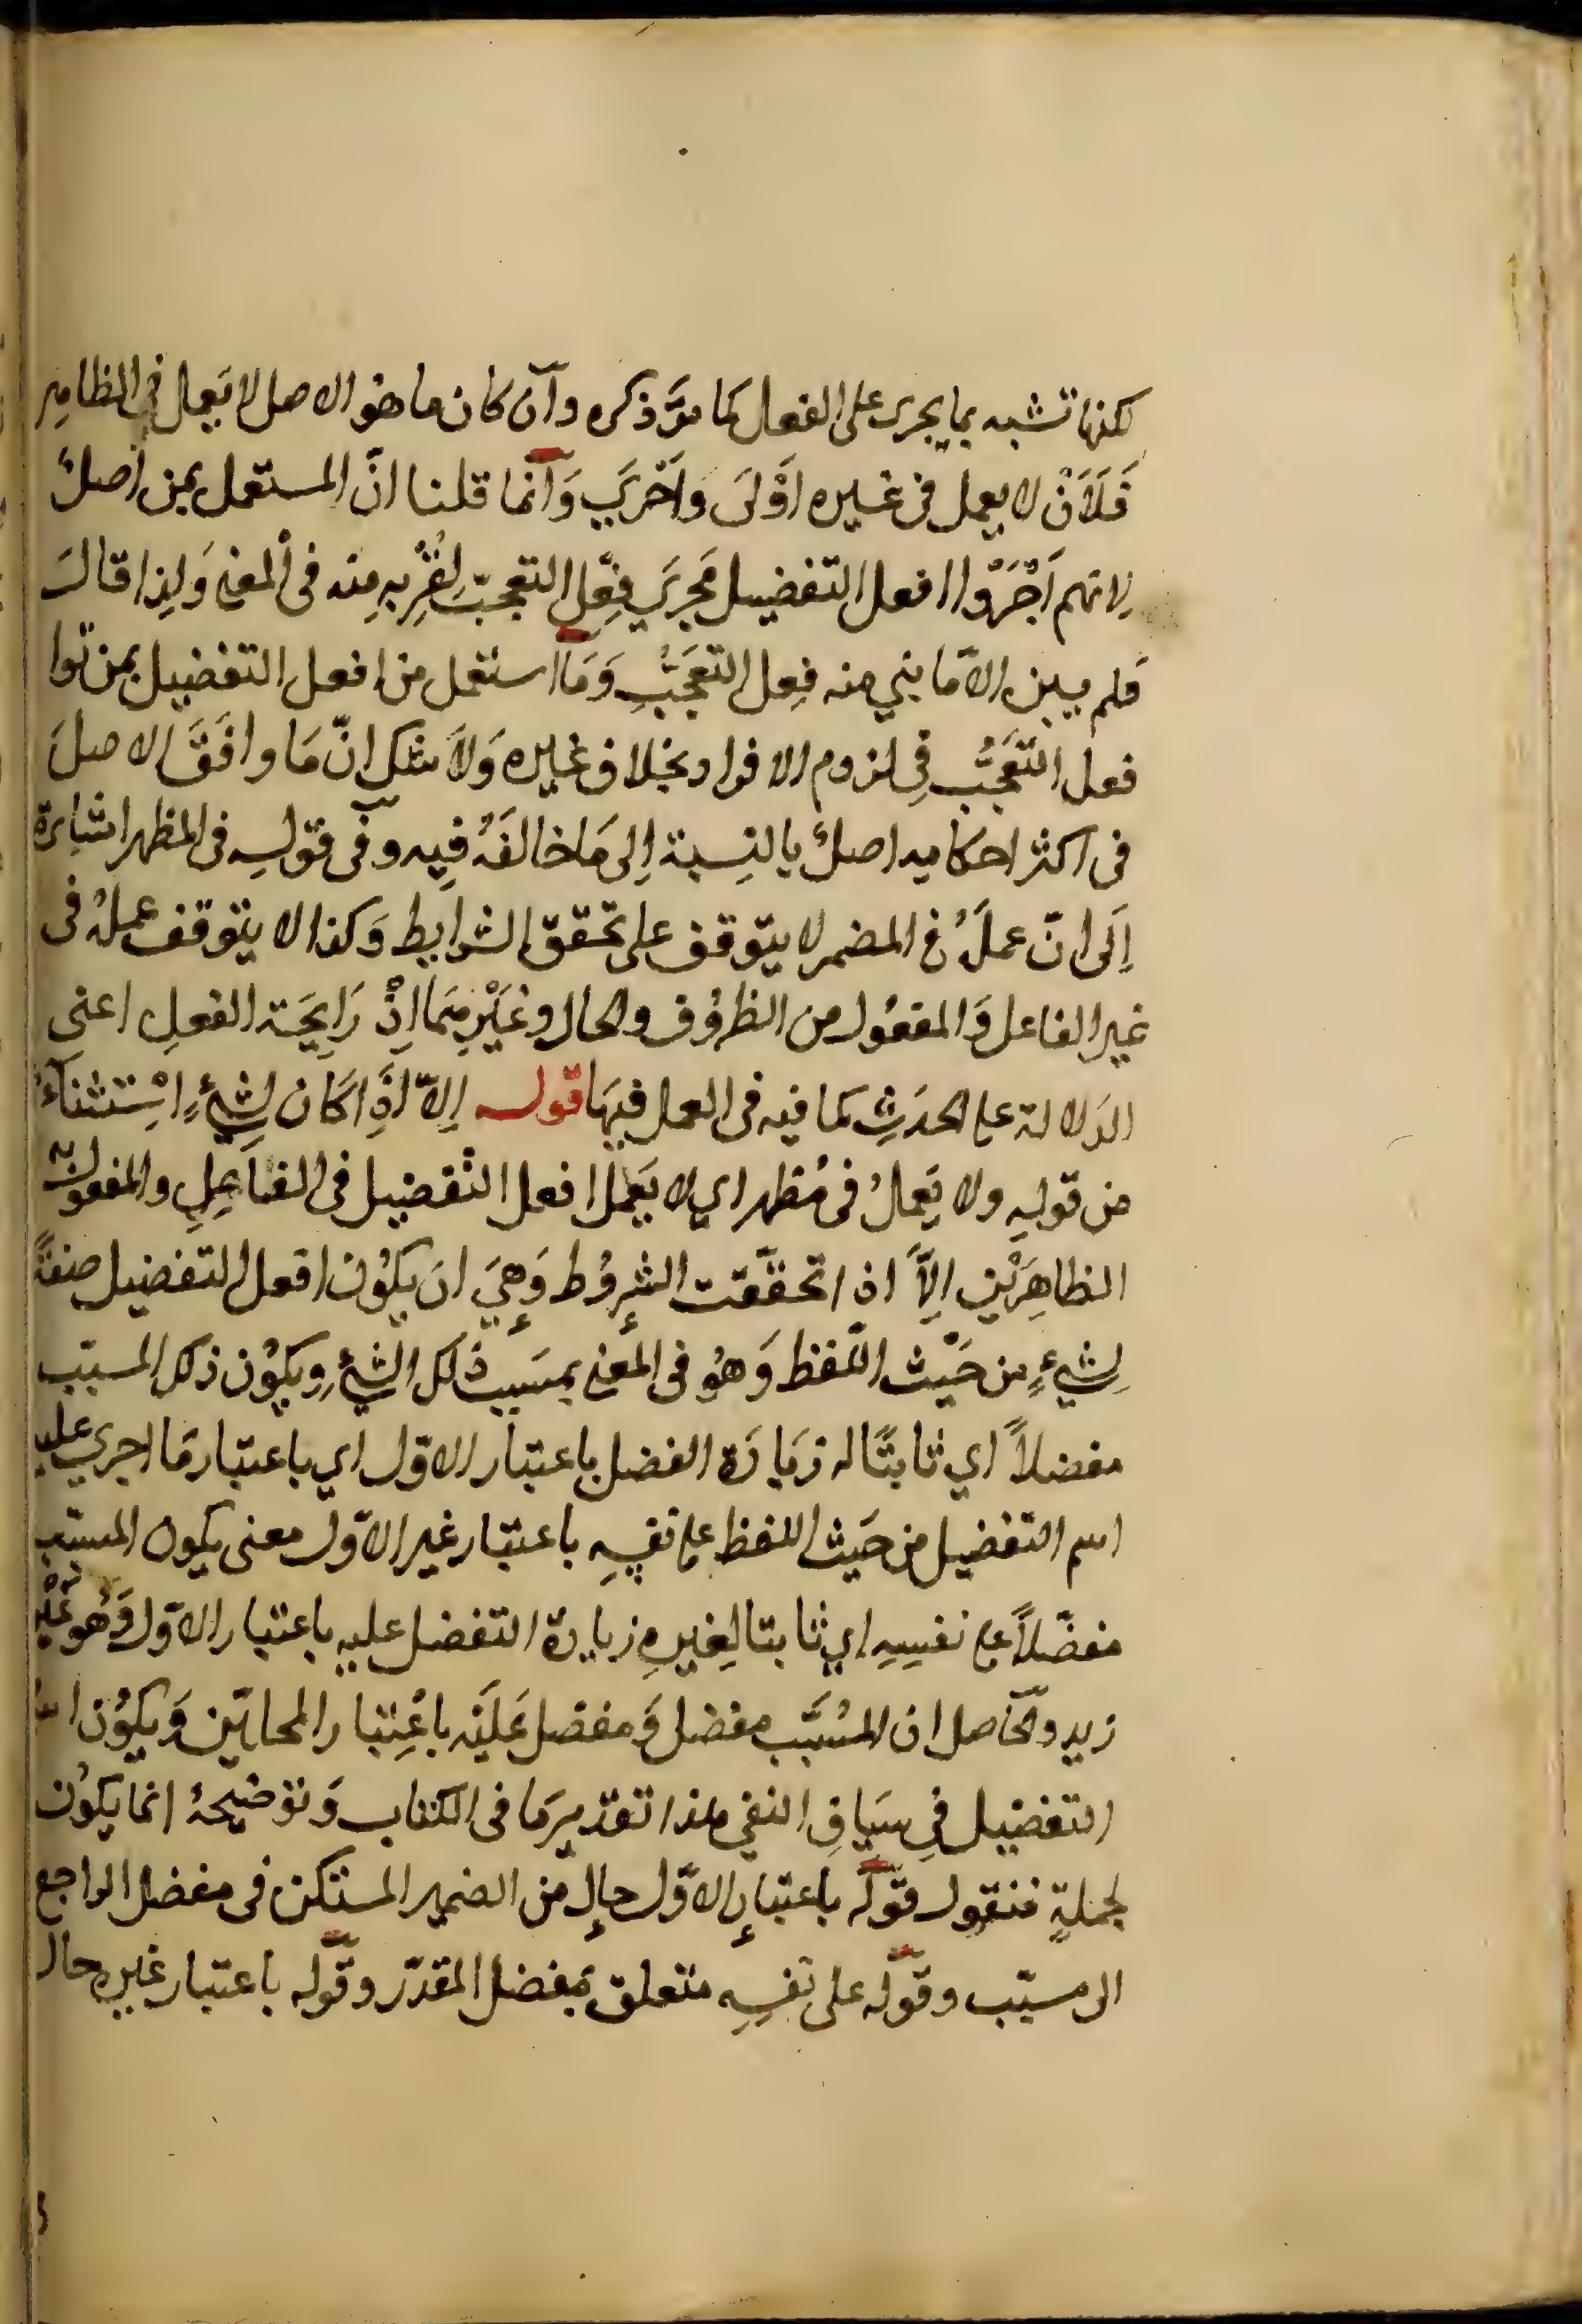 لكنها تشبه بما يجرى على الفعل كما مرَّ ذكره وآن كان ما هو الاصل لا يَعمل في الظاهِر
فَلَاَنْ لا يعمل في غيره اوَّلىَ وَاَحْرَي وَآنّما قلنا انَّ المستعمل بمن أصلٌ
لانهم اَجْرَوْا افعل التفضيل مَجرَي فِعْل التعجبّ لِقُرْبِه مِنه فى المعنى وَلِذا قالَ
فلم يبين الاّ مَا بني منه فِعل التعَجَبُّ وَمَآ استعمل من افعل التفضيل بمن توا
فعل التَعَجُّبِ فِي لزوم الافراد بخلاف غيره وَلاَ شكل انّ مَا وافَقَ الاصلَ
فى اكثر احكامِه اصلٌ بالنِسبة اِلى مَا خالفَهُ فِيه وفى قولِه فى المظهر اشارة
اِلَى انّ عملَهُ فى المضمر لا يتوقف على تحقق الشرايط وَكذا لا يتوقف عملهُ فى
غير الفاعل وَالمفعُول من الظرُوف والحال وغَيْرِهِمَا اذْ رَايحَة الفعلِ اعنى
الدَلالة على الحدَثِ كما فيه فى العمل فيهَا قوله اِلاّ اذَِا كان لِشيءٍ اِسْتثناَءٌ
من قولِهِ ولا يَعمَلُ فى مُظهر اي لا يَعْمَل افعل التفضيل فى الفاعِلِ والمفعول به
الظاهِرَيْن اِلاَّ اذا تحققت الشرُوط وَهِيَ ان يكوُن افعل التفضيل صفةً
لِشيءٍ من حَيْث اللّفظ وَهُو فى المعنى بمسَبب ذلك الشيءِ ويكوُن ذلك المسبّب
مفضلاً اي ثابتًا له زيَادَة الفضل باعتبار الاوّل اي باعتبار مَا اجرى عليه
اسم التفضيل من حَيث اللفظ على نفسِهِ باعتبار غير الاوّل معنى يكون المسبّب
مفضّلاً على نفسِهِ اي ثابتا لِغيرِهِ زيادة التفضل عليه باعتبار الاوّل وَهُو عَيْن
زيد والحّاصل ان المسُبَّب مفضل وَمفضل عَليَْه باعْتِبار المحلّين وَيكوُن اسمُ
التفضيل فِي سيَاقِ النفي هذا تقدير مَا فى الكتاب وَتوضيحهُ انما يكوُن
لجملةٍ فنقول قوّله باعتبارِ الاوّل حالٍ من الضمير المستكن فى مفضل الراجع
الى مسبّب وقوّله على نفسِهِ متعلق بمفضل المقدّر وقوّله باعتبار غيره حال